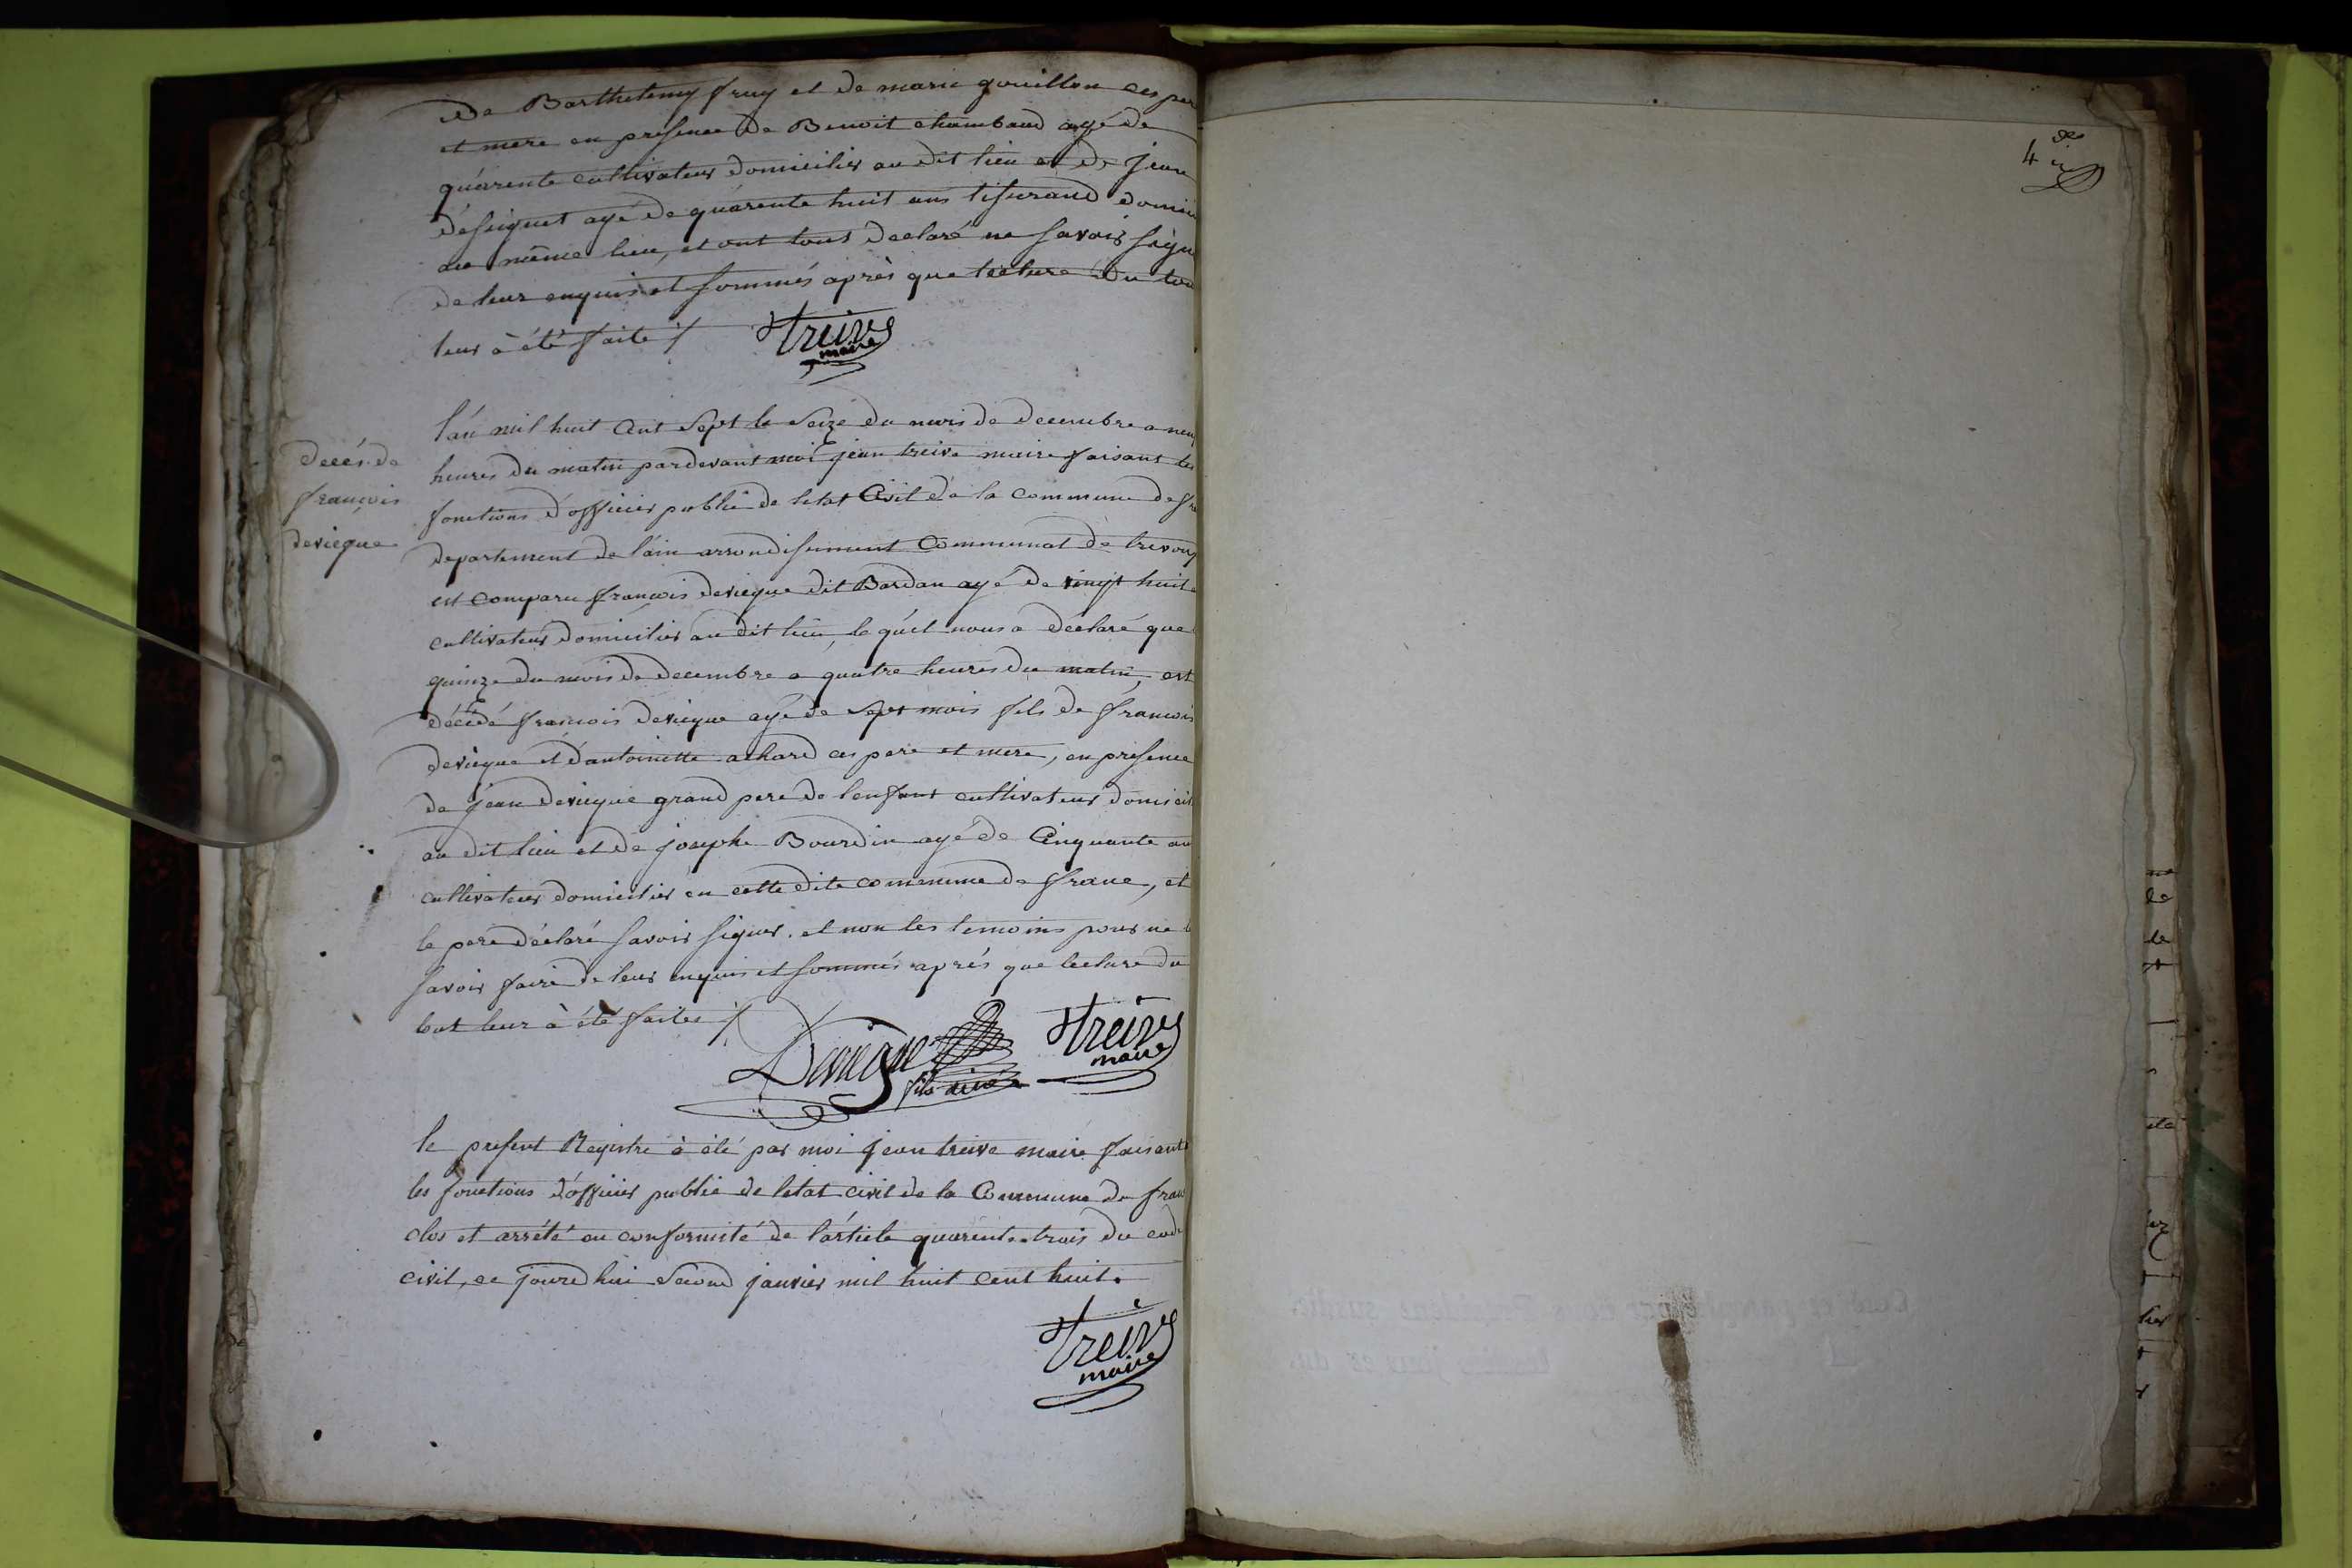 De Barthelemy fruy et de marie gouillon ces per
et mere en presence De Benoit chambaud agé de
quárente cultivateur domicilier au dit lieu et De jean
désiguet agé de quárente huit ans tiserand domici
au même lieu, et ont tout declaré ne savoir signe
de leur enquis et sommés après que lecture du tou
leur à été faite /
Treive
maire
l'an mil huit Cent Sept le Seize du mois de decembre a neuf
heures du matin pardevant moi jean treive maire faisant les
fonctions d'officier public de letat Civil de la commune de fra
departement de l'ain arrondisement Communal de trevoux
est comparu françois devieque dit Bardan agé de vingt huit
cultivateur domicilier au dit lieu, le quel nous a déclaré que
quinze du mois de decembre a quatre heures du matin, est
décédé françois devieque agé de Sept mois fils de françois
devieque et d'antoinette achard ces pere et mere, en présence
de jean devieque grand pere de lenfant cultivateur domicil
au dit lieu et de josephe Bourdin agé de Cinquante an
cultivateur domicilier en cette dite commune de frane, et
le pere déclaré savoir signer. et non les temoins pour ne l
savoir faire de leur enquis et sommés après que lecture du
tout leur à été faites /
decés de
françois
devieque
Devieque
fils ainé
Treive
maire
le présent Registre à été par moi jean treive maire faisant
les fonctions d'officier public de letat civil de la Commune de fran
clos et arrété en conformité de l'article quarente trois du code
civil, ce jourdhui Second janvier mil huit cent huit.
Treive
maire
4